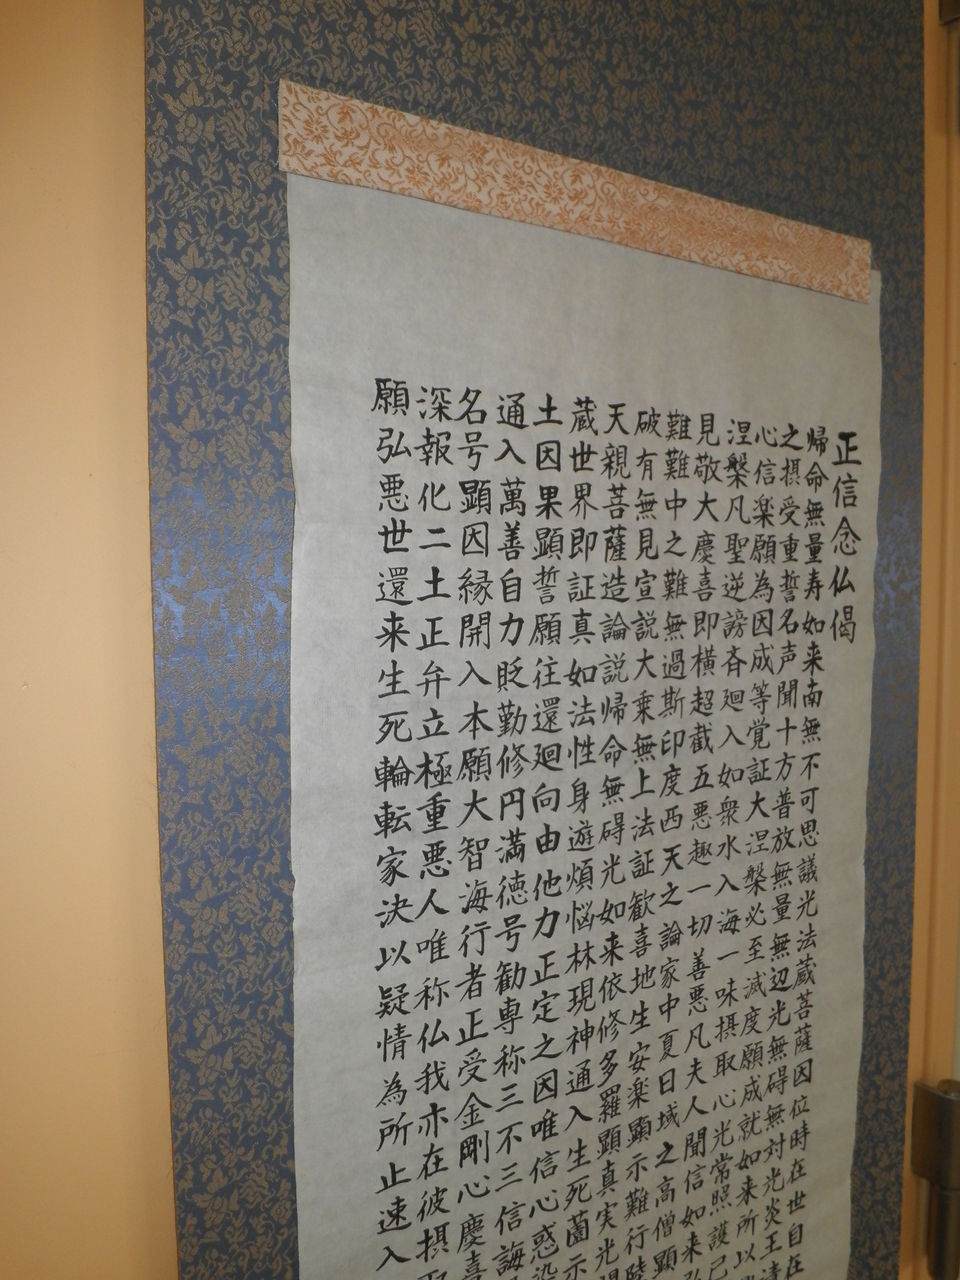 正信念仏偈
帰命無量寿如来南無不可思議光法蔵菩薩因位時在世自在
之摂受重誓名声聞十方普放無量無辺光無碍無対光炎王清
心信楽願為因成等覚証大涅槃必至滅度願成就如来所以
涅槃凡聖逆謗斉廻入如衆水入海一味摂取心光常照護已
見敬大慶喜即横超截五悪趣一切善悪凡夫人聞信如来弘
難難中之難無過斯印度西天之論家中夏日域之高僧顕
破有無見宣説大乗無上法証歓喜地生安楽顕示難行陸
天親菩薩造論説帰命無碍光如来依修多羅顕真実光闡
蔵世界即証真如法性身遊煩悩林現神通入生死薗示
土因果顕誓願往還廻向由他力正定之因唯信心惑染
通入萬善自力貶勤修円満徳号勧専称三不三信誨
名号顕因縁開入本願大智海行者正受金剛心慶喜
深報化二土正弁立極重悪人唯称仏我亦在彼摂取
願弘悪世還来生死輪転家決以疑情為所止速入